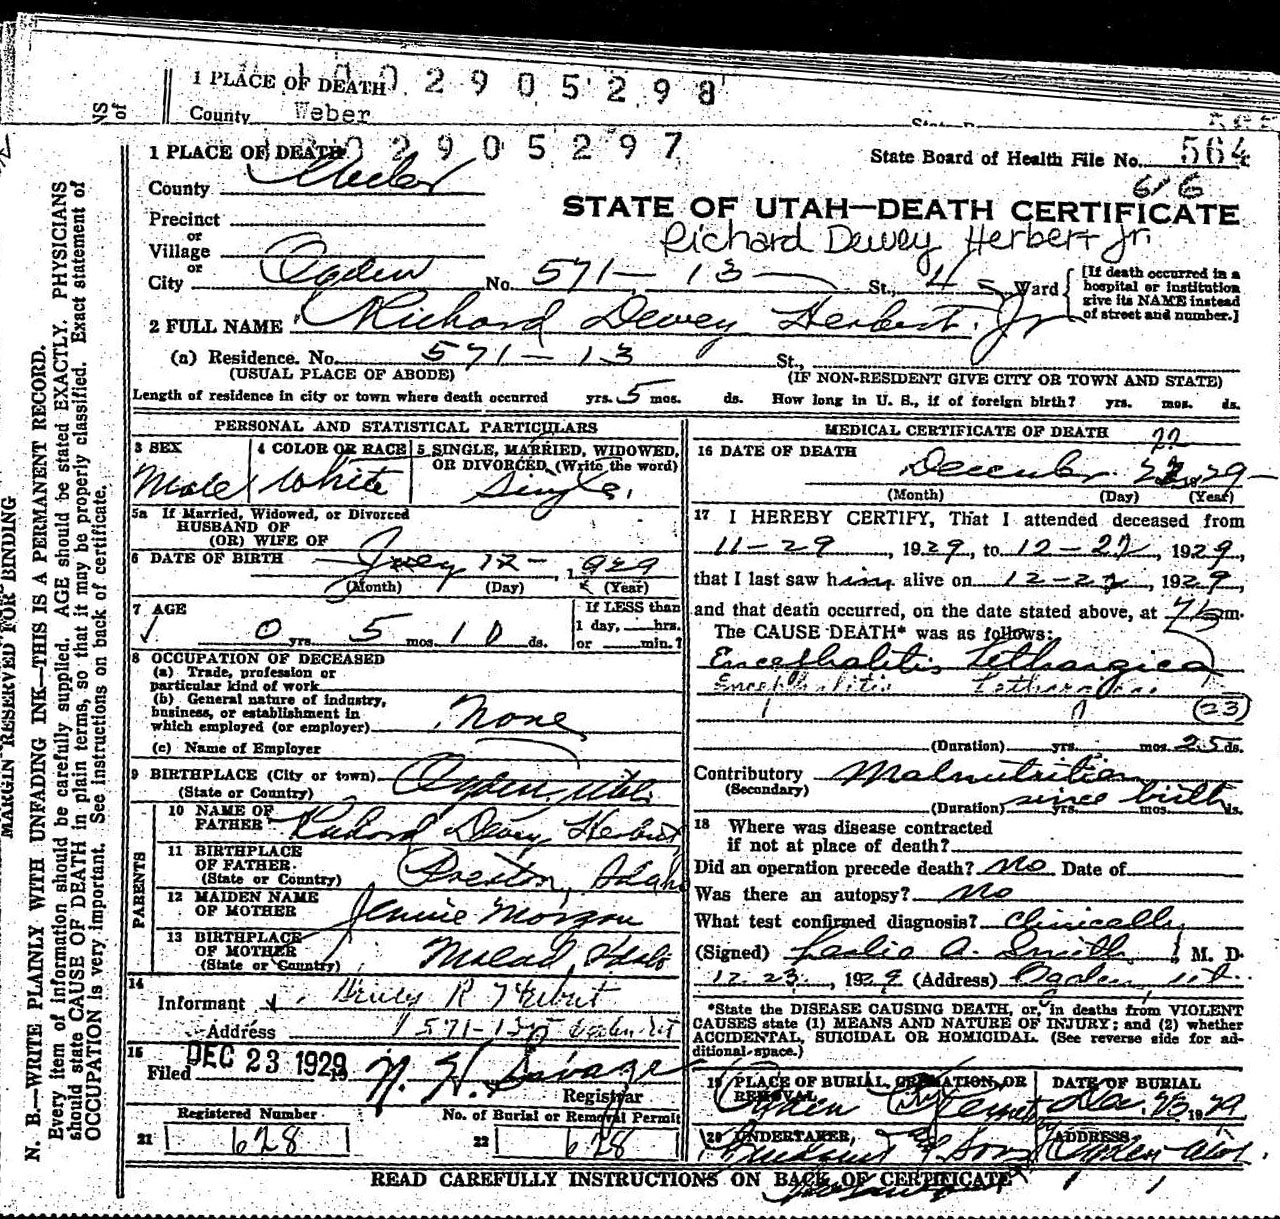 1 PLACE OF DEATH 1 0 0 2 9 0 5 2 9 8
County Weber
NS
of
1 PLACE OF DEATH 0 2 9 0 5 2 9 7
State Board of Health File No. 564
County Weber
616
Precinct
STATE OF UTAH—DEATH CERTIFICATE
or
Village
Richard Dewey Herbert Jr
or
City Ogden No. 571-13 St., 4 Ward
[If death occurred in a
hospital or institution
give its NAME instead
of street and number.]
2 FULL NAME Richard Dewey Herbert. Jr
(a) Residence. No. 571-13 St.,
(USUAL PLACE OF ABODE) (IF NON-RESIDENT GIVE CITY OR TOWN AND STATE)
Length of residence in city or town where death occurred yrs. 5 mos. ds. How long in U. S., if of foreign birth? yrs. mos. ds.
PERSONAL AND STATISTICAL PARTICULARS
3 SEX
Male
4 COLOR OR RACE
White
5 SINGLE, MARRIED, WIDOWED,
OR DIVORCED (Write the word)
Single.
5a If Married, Widowed, or Divorced
HUSBAND OF
(OR) WIFE OF
6 DATE OF BIRTH 12- 1929
(Month) (Day) (Year)
7 AGE
0 yrs. 5 mos. 10 ds.
If LESS than
1 day, hrs.
or min.?
8 OCCUPATION OF DECEASED
(a) Trade, profession or
particular kind of work
(b) General nature of industry,
business, or establishment in
which employed (or employer) None
(c) Name of Employer
9 BIRTHPLACE (City or town)
(State or Country) Ogden, Utah
PARENTS
10 NAME OF
FATHER Richard Dewey Herbert
11 BIRTHPLACE
OF FATHER.
(State or Country) Preston, Idaho
12 MAIDEN NAME
OF MOTHER Jennie Morgan
13 BIRTHPLACE
OF MOTHER
(State or Country) Malad, Idaho
14
Informant Dewey R Herbert
Address 571-13 St Ogden Ut
15
Filed DEC 23 1929 19 N. H. Savage
Registrar
Registered Number No. of Burial or Removal Permit
21 628 22 628
MEDICAL CERTIFICATE OF DEATH
22
16 DATE OF DEATH
December 29
(Month) (Day) (Year)
17 I HEREBY CERTIFY, That I attended deceased from
11-29, 1929, to 12-22, 1929,
that I last saw him alive on 12-22, 1929,
and that death occurred, on the date stated above, at m.
The CAUSE DEATH* was as follows:
Encephalitis Lethargica
Encephalitis Lethargica
(23)
(Duration) yrs. mos. 25 ds.
Contributory Malnutrition
(Secondary)
(Duration) since birth yrs. mos. ds.
18 Where was disease contracted
if not at place of death?
Did an operation precede death? No Date of
Was there an autopsy? No
What test confirmed diagnosis? Clinically
(Signed) Leslie A. Smith, M. D.
12 23, 1929 (Address) Ogden, Ut.
*State the DISEASE CAUSING DEATH, or, in deaths from VIOLENT
CAUSES state (1) MEANS AND NATURE OF INJURY; and (2) whether
ACCIDENTAL, SUICIDAL OR HOMICIDAL. (See reverse side for ad-
ditional space.)
19 PLACE OF BURIAL, CREMATION, OR
REMOVAL
Ogden City Cemetery
DATE OF BURIAL
Dec. 23, 1929
20 UNDERTAKER,
& Sons
ADDRESS
Ogden Utah.
READ CAREFULLY INSTRUCTIONS ON BACK OF CERTIFICATE
MARGIN RESERVED FOR BINDING
N. B.—WRITE PLAINLY WITH UNFADING INK—THIS IS A PERMANENT RECORD.
Every item of information should be carefully supplied. AGE should be stated EXACTLY. PHYSICIANS
should state CAUSE OF DEATH in plain terms, so that it may be properly classified. Exact statement of
OCCUPATION is very important. See instructions on back of certificate.